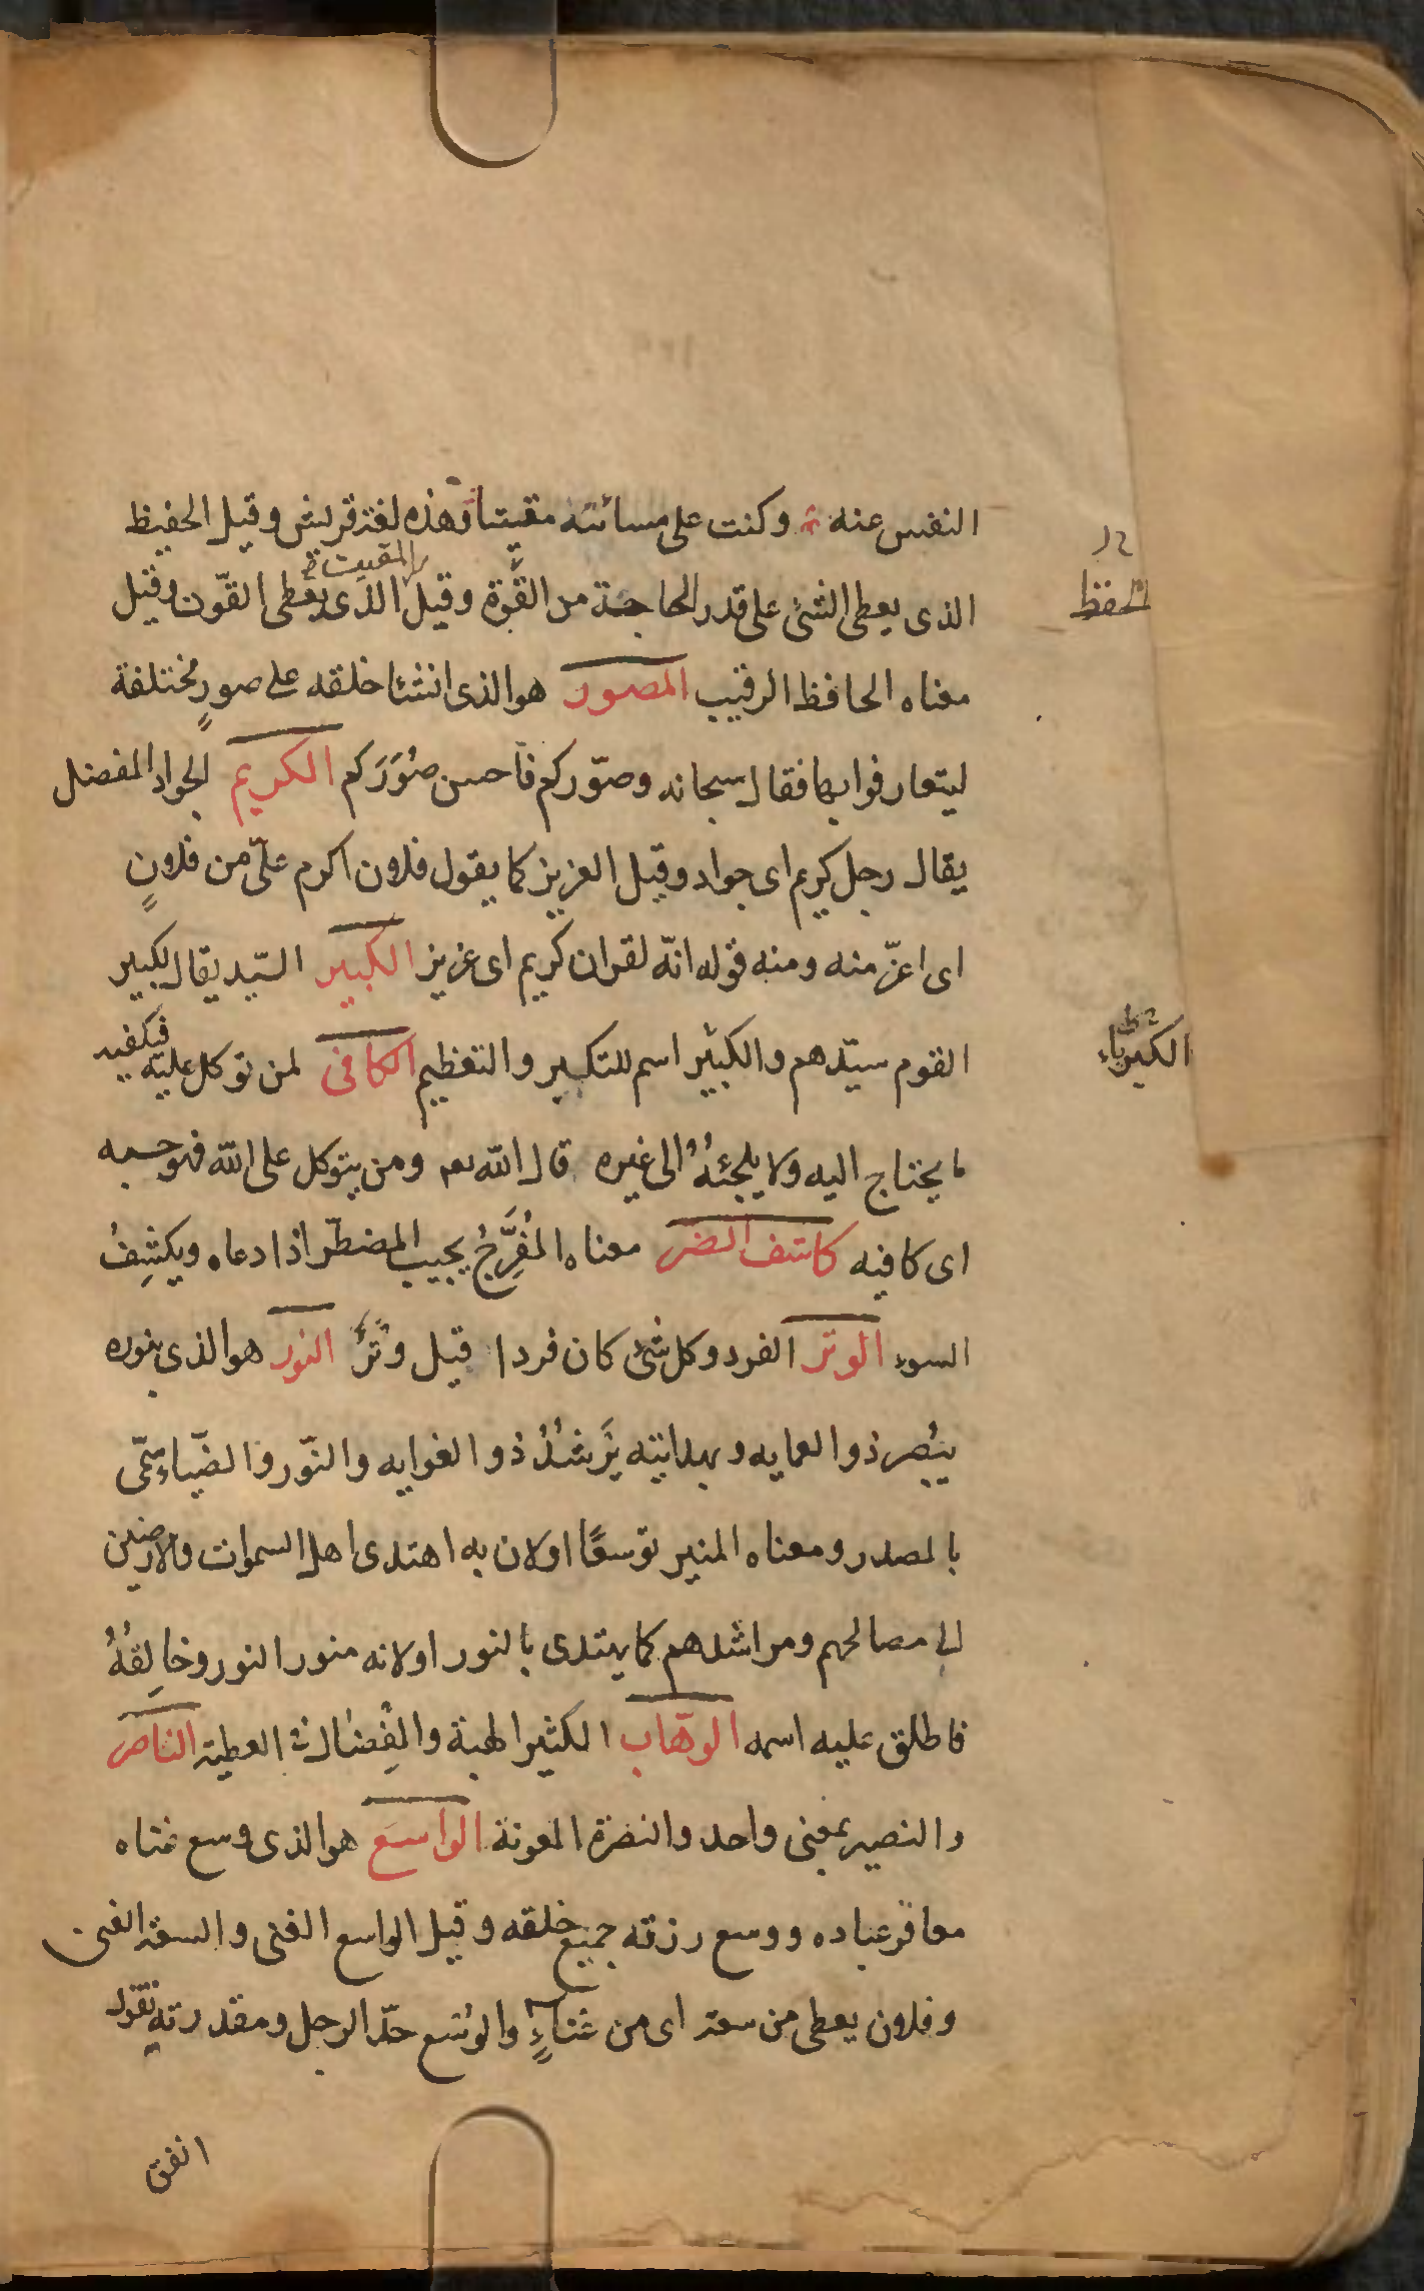 النفس عنه وكنت على مسائته مقيتا وهذه لغة قريش وقيل الحفيظ
الحفظ
المقيت
الذى يعطى الشئ على قدر الحاجة من القوّة وقيل الذى يعطى القوت وقيل
معناه الحافظ الرقيب المصور هو الذى انشئا خلقه على صورٍ مختلفة
ليتعارفوا بها فقال سبحانه وصوّركم فاحسن صُوَرَكم الكريم الجواد المفضل
يقال رجل كريم اى جواد وقيل العزيز كما يقول فلان اكرم علىّ من فلانٍ
اى اعزّ منه ومنه قوله انّه لقران كريم اى عزيز الكبير السّيد يقال لكبير
القوم سيّدهم والكبير اسم للتكبير والتعظيم الكافى لمن توكل عليه فيكفيه
الكبرياء
ما يحتاج اليه ولا يلجئهُ الى غيره قال الله تعم ومن يتوكل على الله فهو حسبه
اى كافيه كاشف الضر معناه المُفَرِّجُ يجيب المضطّر اذا دعاه ويكشِفُ
السوء الوتر الفرد وكل شئ كان فردا قيل وتر النور هو الذى بنوره
يبُصر ذو العمايه وبهدايته يَرشُدُ ذو الغوايه والنّور والضّياء سمّى
بالمصدر ومعناه المنير توسعًا او لان به اهتدى اهل السموات والارضين
الى مصالحهم ومراشدهم كما يهتدى بالنور او لانه منور النور وخالِقُهُ
فاطلق عليه اسمه الوهّاب الكثير الهبة والمِفْضال فى العطية الناصر
والنصير بمعنى واحد والنصرة المعونة الواسع هو الذى وسع غناه
مفاقر عباده ووسع رزقه جميع خلقه وقيل الواسع الغنى والسعة الغنى
وفلان يعطى من سعة اى من غناءٍ والوُسع جدّ الرجل ومقدرته تقول
انفق